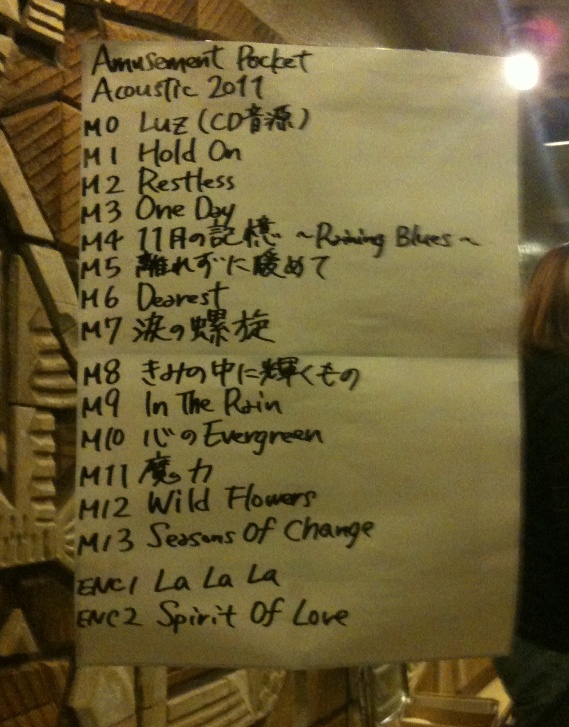 Amusement Pocket
Acoustic 2011
M0 Luz (CD音源)
M1 Hold On
M2 Restless
M3 One Day
M4 11月の記憶 ~Raining Blues~
M5 離れずに暖めて
M6 Dearest
M7 涙の螺旋
M8 きみの中に輝くもの
M9 In The Rain
M10 心のEvergreen
M11 魔の力
M12 Wild Flowers
M13 Seasons Of Change
ENC1 La La La
ENC2 Spirit Of Love